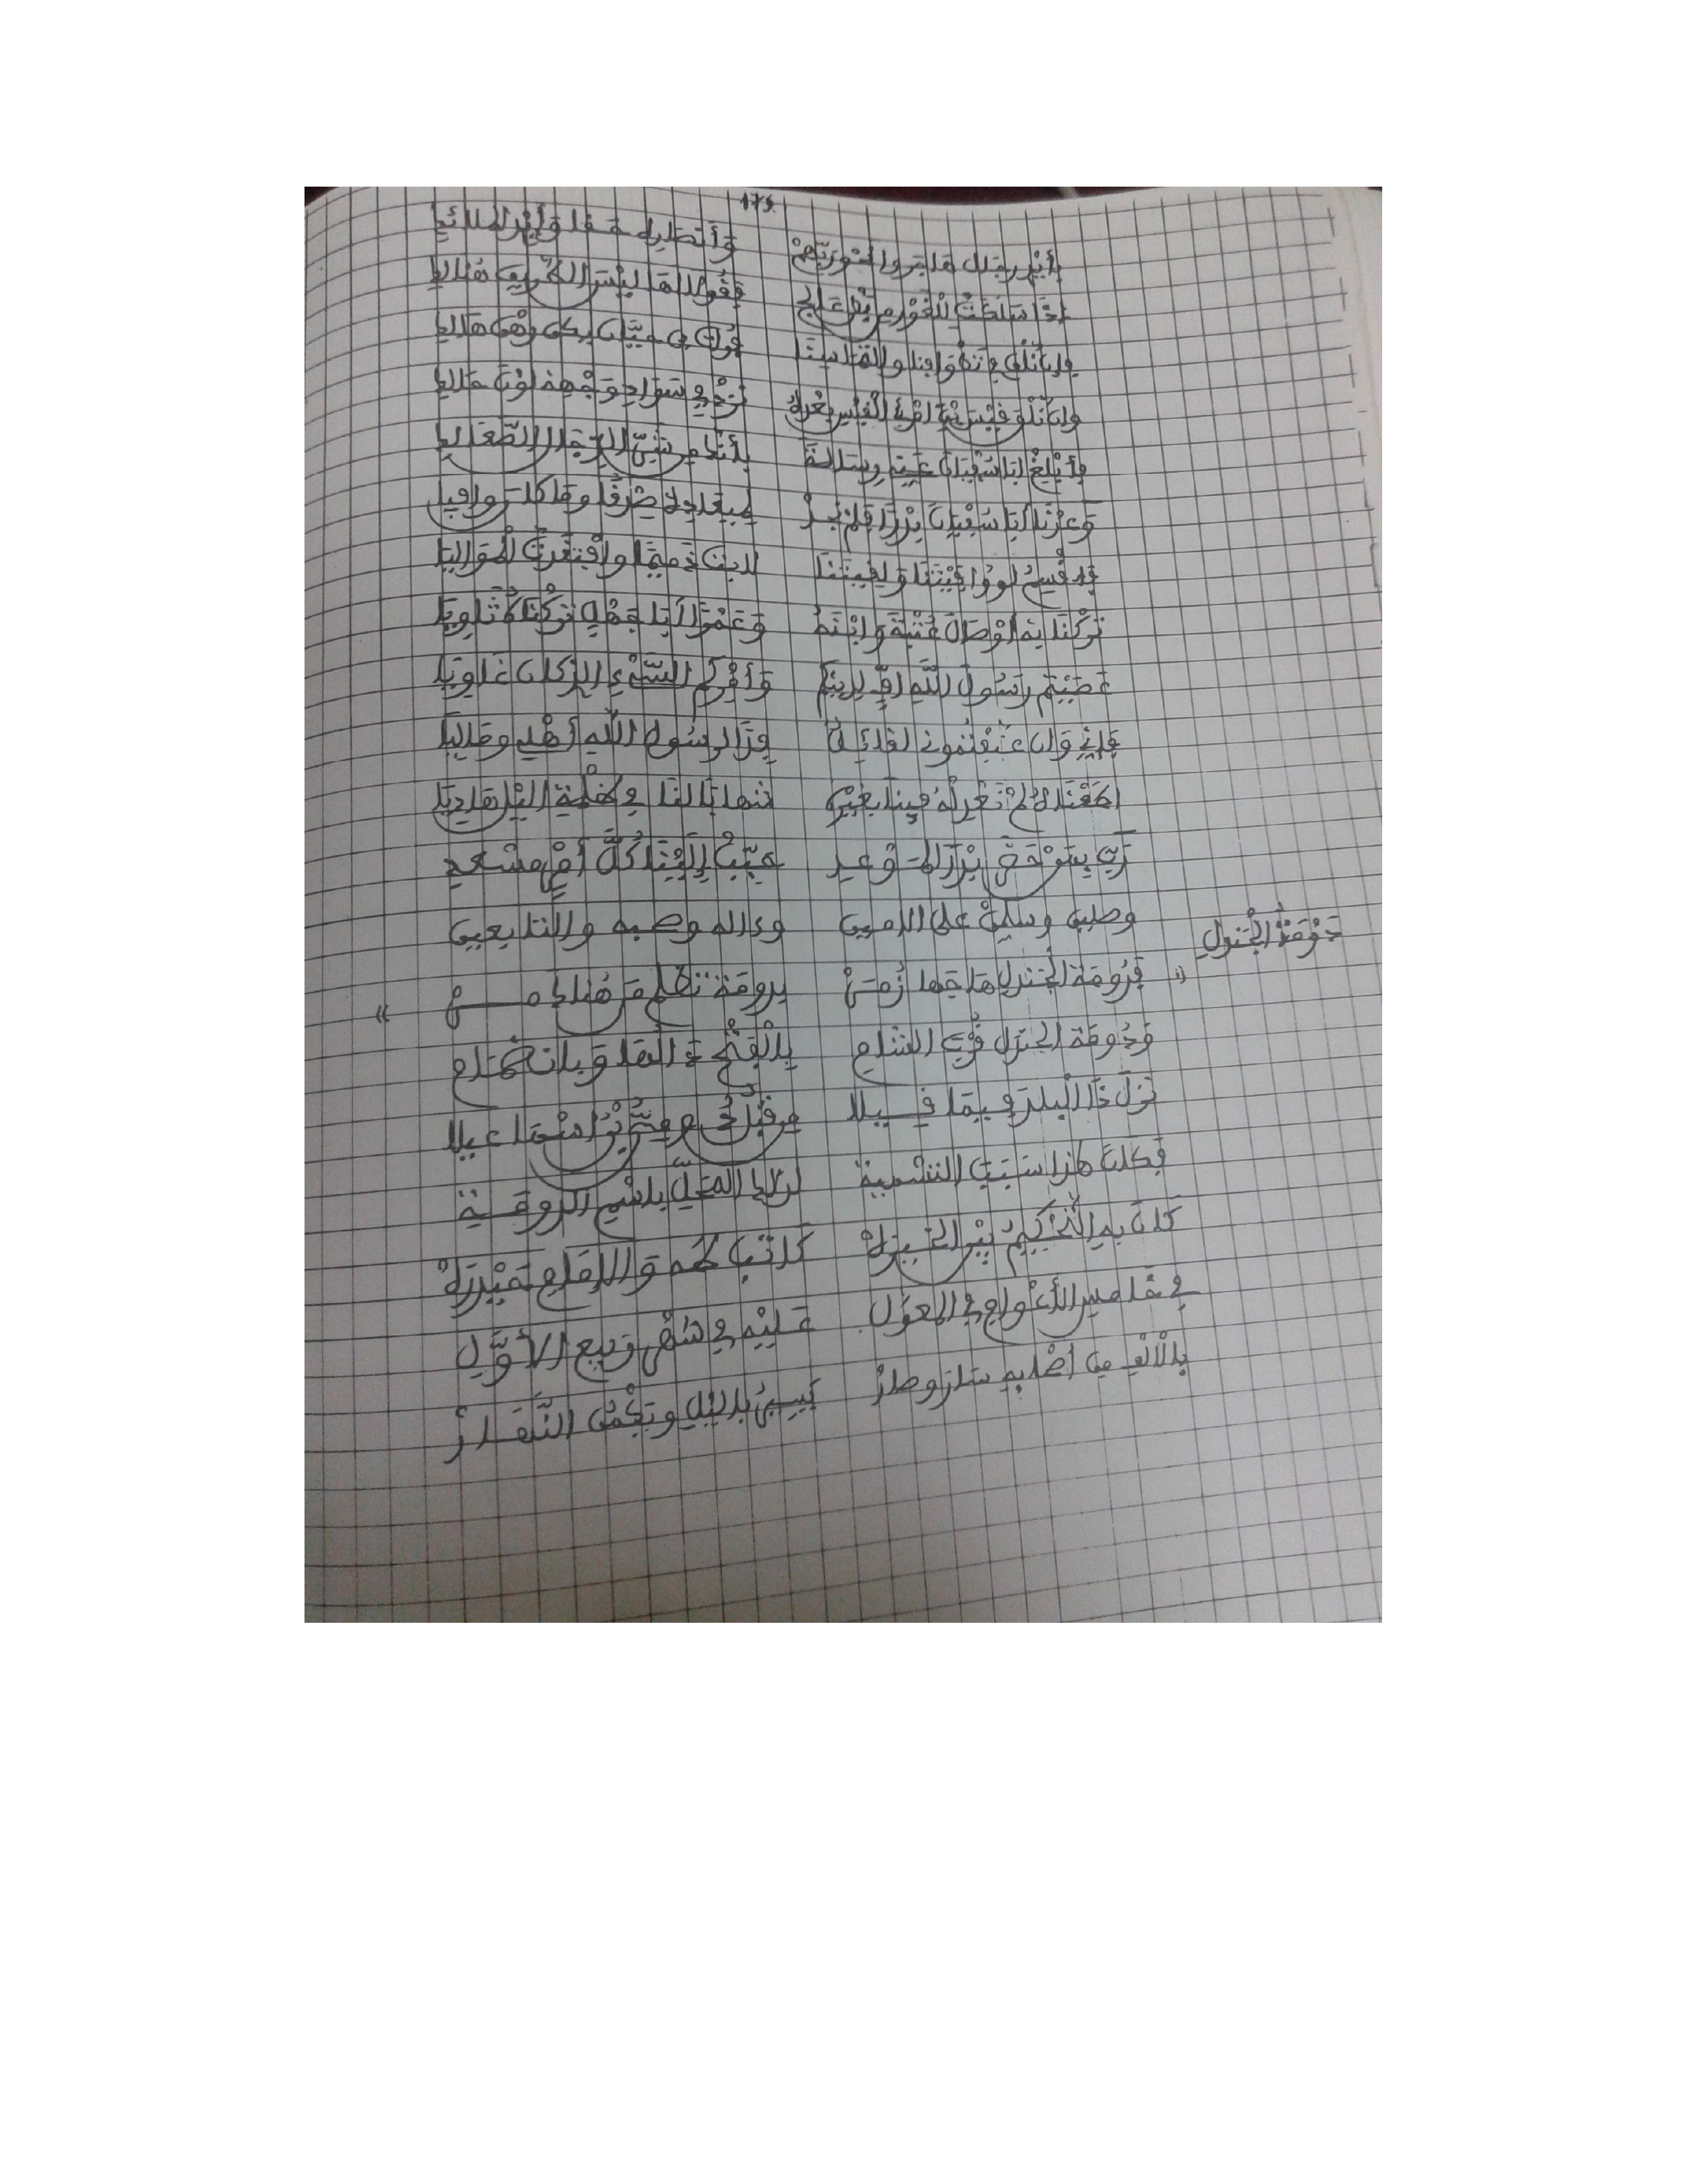 175
بأيدي رجال هاجروا نحو ربهم وأنصاره حقا وأيدي الملائك
إذا سلكت للغور من بطن عالج فقولا لها ليس الطريق هنالك
فإن نلق في تطوافنا والتماسنا فرات بن حيان يكن رهن هالك
وإن نلق قيس بن امرئ القيس بعده نزد في سواد وجهه لون حالك
فأبلغ ابا سفيان عني رسالة فإنك من شر الرجال الصعالك
وعدنا أبا سفيان بدرا فلم نجد لميعاده صدقا وما كان وافيا
فاقسم لو وافيتنا ولقيتنا لابت ذميما وافتقدت المواليا
تركنا به أوصال عتبة وابنه وعمرا أبا جهل تركناه ثاويا
عصيتم رسول الله اف لدينكم وأمركم السيء الذي كان غاويا
فإني وإن عنفتموني لقائل فدا لرسول الله أهلي وماليا
اطعناه لم نعدله فينا بغيره شهابا لنا في ظلمة الليل هاديا
وصلين وسلمن على الامين وءاله وصحبه والتابعين
دومة الجندل
« فدومة الجندل هاجها زمن بدومة تظلم من هناك من »
ودومة الجندل قرب الشام
نزل ذا البلد فيما قيلا من قبل دمي بن اسماعيلا
فكان هذا سبب التسمية لذلك المحل باسم الدومية
كان به التحكيم
في خامس الأعوام في المعول عليه في شهر ربيع الأول
بالألف من أصحابه سار وصار يسير بالليل ويكمن النهار